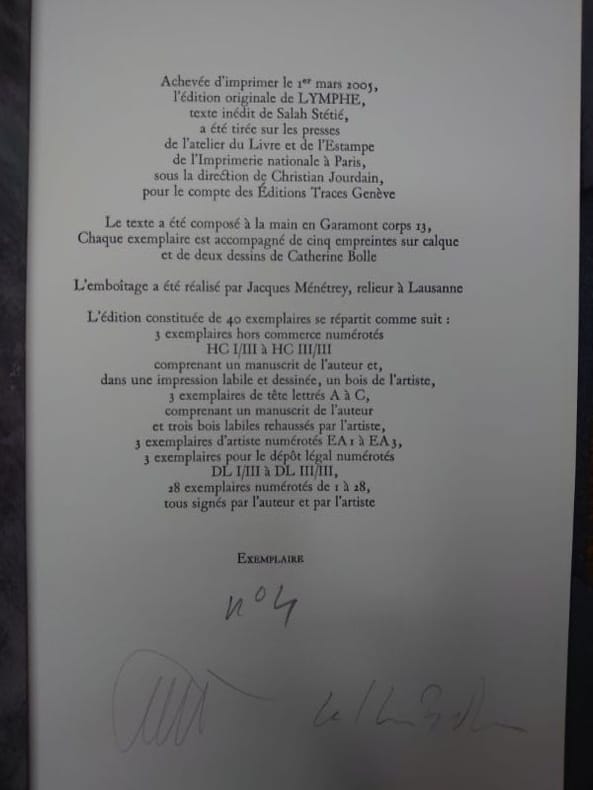 Achevée d'imprimer le 1er mars 2005,
l'édition originale de LYMPHE,
texte inédit de Salah Stétié,
a été tirée sur les presses
de l'atelier du Livre et de l'Estampe
de l'Imprimerie nationale à Paris,
sous la direction de Christian Jourdain,
pour le compte des Éditions Traces Genève
Le texte a été composé à la main en Garamont corps 13,
Chaque exemplaire est accompagné de cinq empreintes sur calque
et de deux dessins de Catherine Bolle
L'emboîtage a été réalisé par Jacques Ménétrey, relieur à Lausanne
L'édition constituée de 40 exemplaires se répartit comme suit :
3 exemplaires hors commerce numérotés
HC I/III à HC III/III
comprenant un manuscrit de l'auteur et,
dans une impression labile et dessinée, un bois de l'artiste,
3 exemplaires de tête lettrés A à C,
comprenant un manuscrit de l'auteur
et trois bois labiles rehaussés par l'artiste,
3 exemplaires d'artiste numérotés EA1 à EA3,
3 exemplaires pour le dépôt légal numérotés
DL I/III à DL III/III,
28 exemplaires numérotés de 1 à 28,
tous signés par l'auteur et par l'artiste
EXEMPLAIRE
n° 4